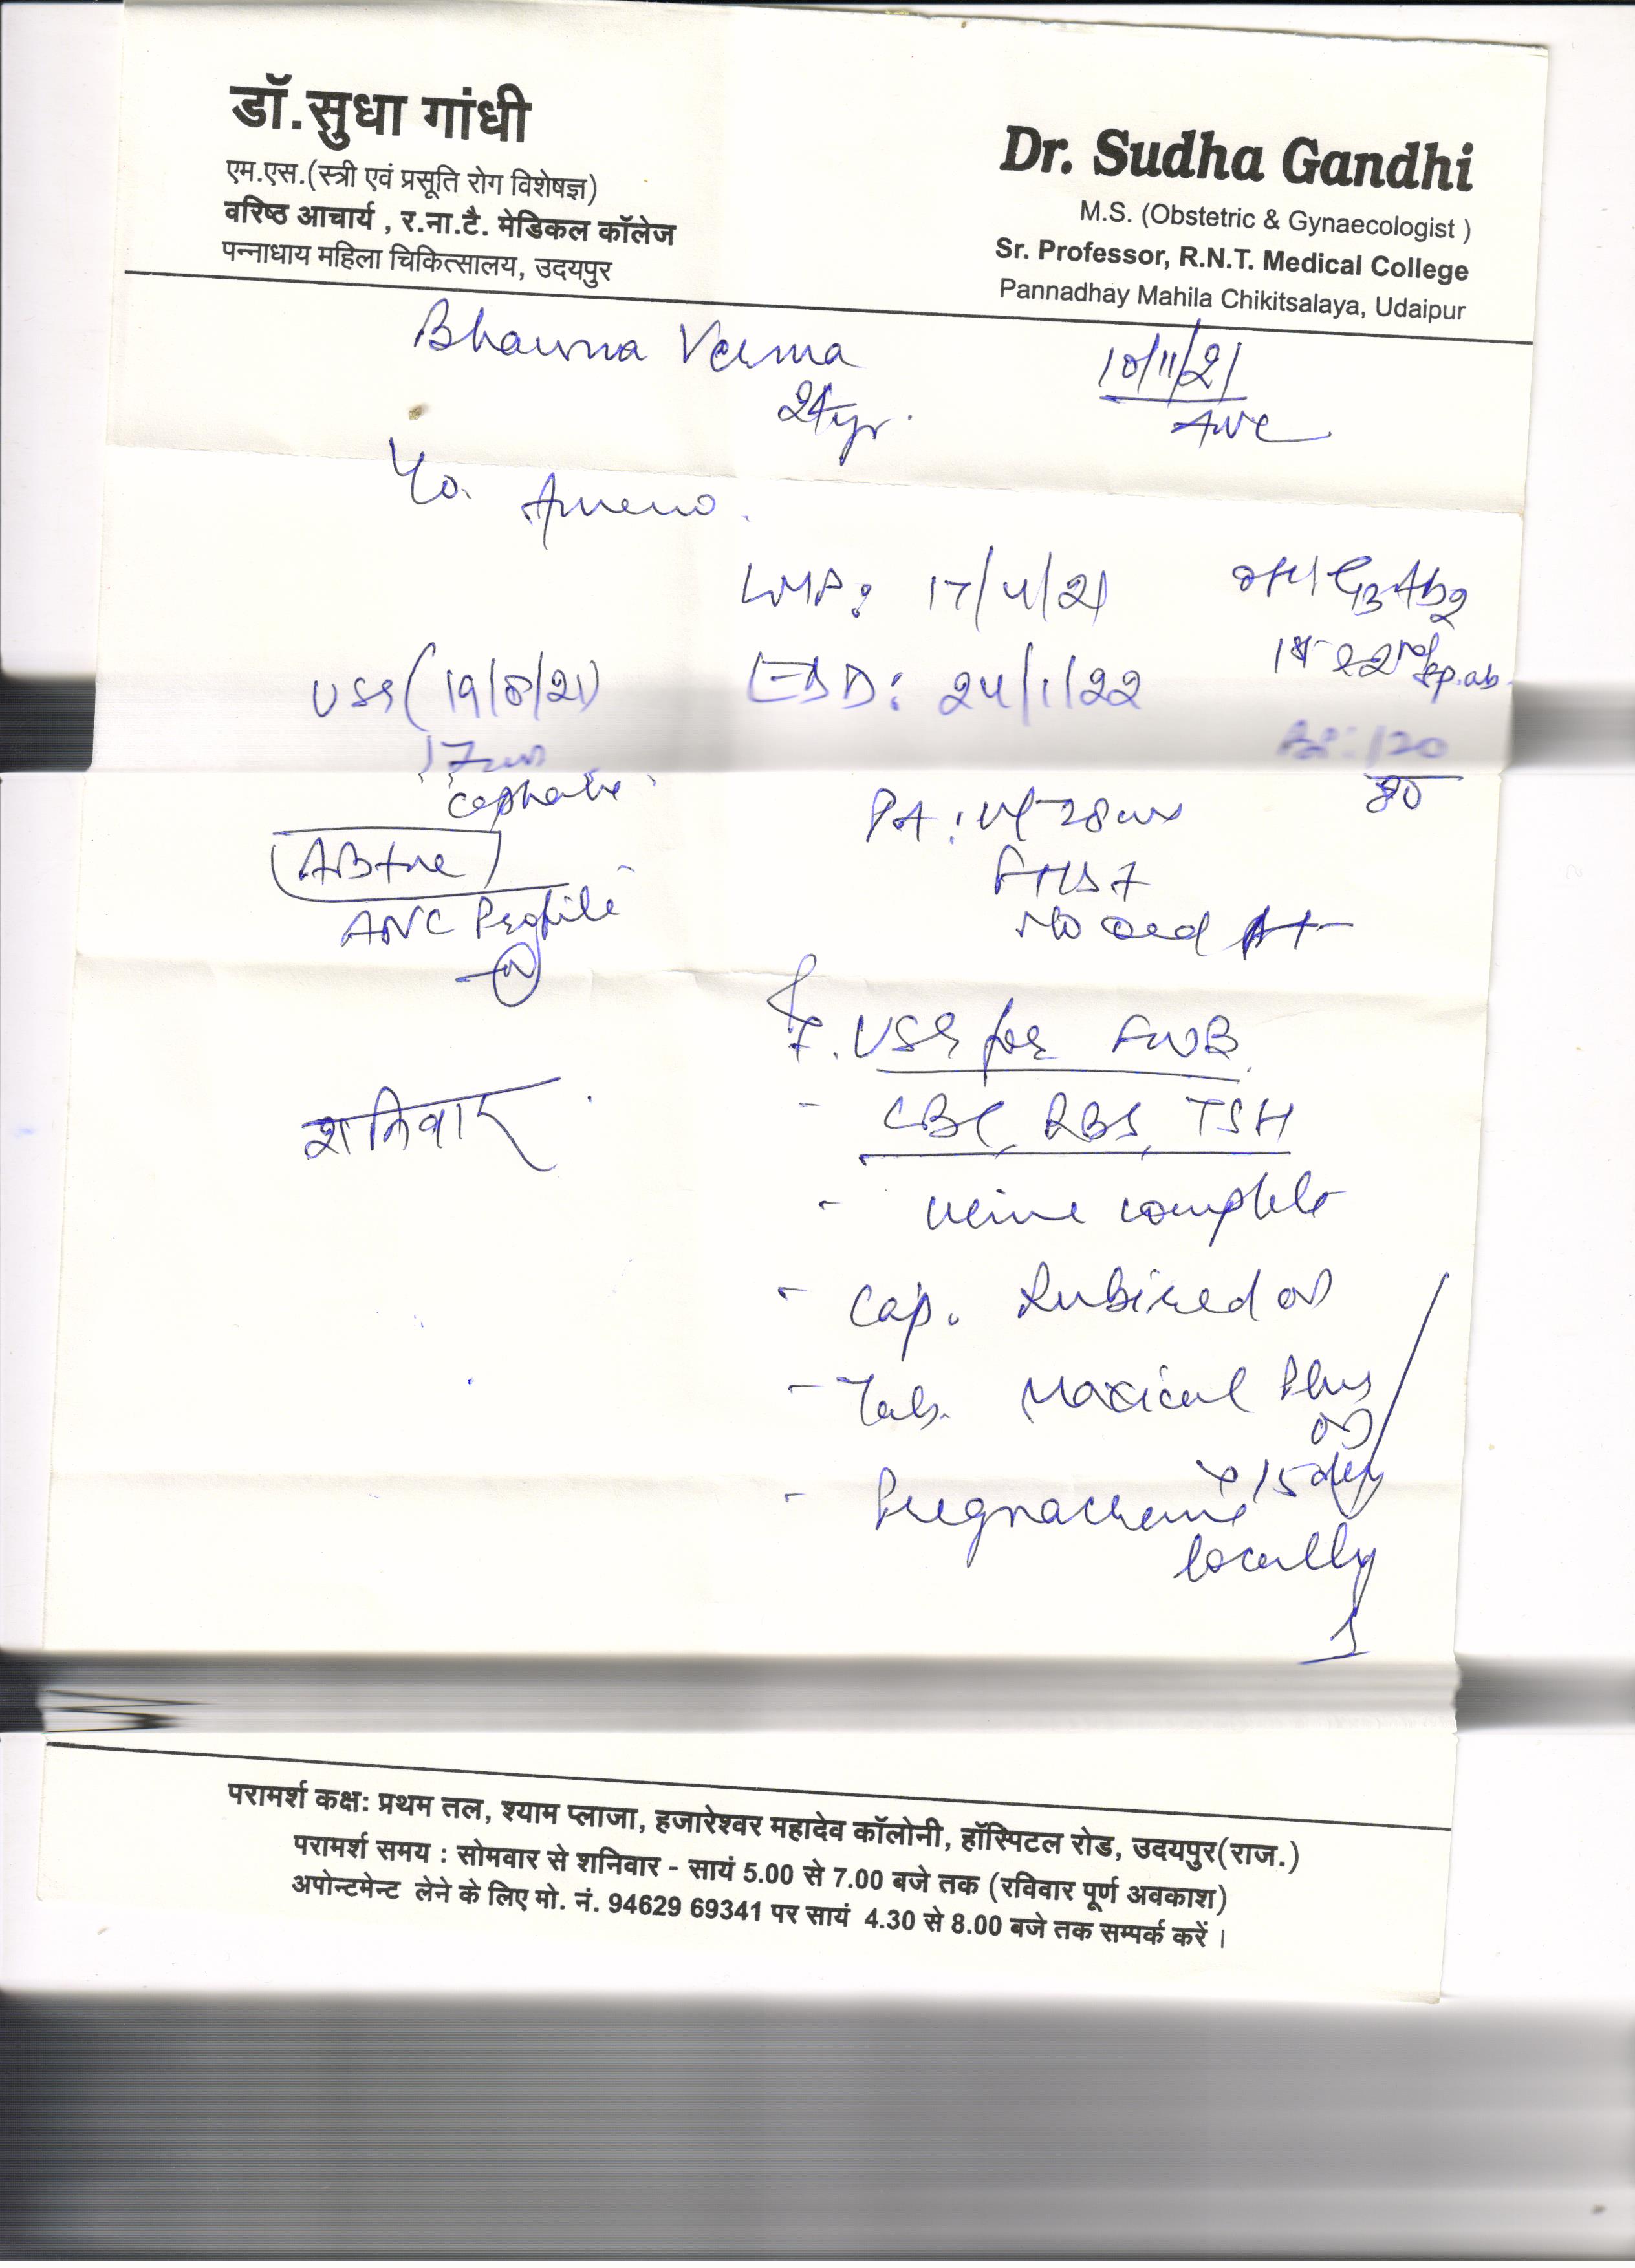 डॉ.सुधा गांधी
एम.एस.(स्त्री एवं प्रसूति रोग विशेषज्ञ)
वरिष्ठ आचार्य , र.ना.टै. मेडिकल कॉलेज
पन्नाधाय महिला चिकित्सालय, उदयपुर
Dr. Sudha Gandhi
M.S. (Obstetric & Gynaecologist )
Sr. Professor, R.N.T. Medical College
Pannadhay Mahila Chikitsalaya, Udaipur
Bhawna Verma
24yr.
10/11/21
ANC
Ameno.
LMP: 17/4/21
G3Ab2
1st 2nd sp.ab.
USG (19/8/21)
EDD: 24/1/22
17
cephalic
BP: 120
80
PA: 28
FHS +
AB+ve
ANC Profile
N
USG for FWB
- CBC, RBS, TSH
- Urine complete
शनिवार
- Cap. Rubired OD
- Tab. Maxical Plus
OD
x 15 day
- Pregnacheme
locally
परामर्श कक्ष: प्रथम तल, श्याम प्लाजा, हजारेश्वर महादेव कॉलोनी, हॉस्पिटल रोड, उदयपुर(राज.)
परामर्श समय : सोमवार से शनिवार - सायं 5.00 से 7.00 बजे तक (रविवार पूर्ण अवकाश)
अपोन्टमेन्ट लेने के लिए मो. नं. 94629 69341 पर सायं 4.30 से 8.00 बजे तक सम्पर्क करें ।